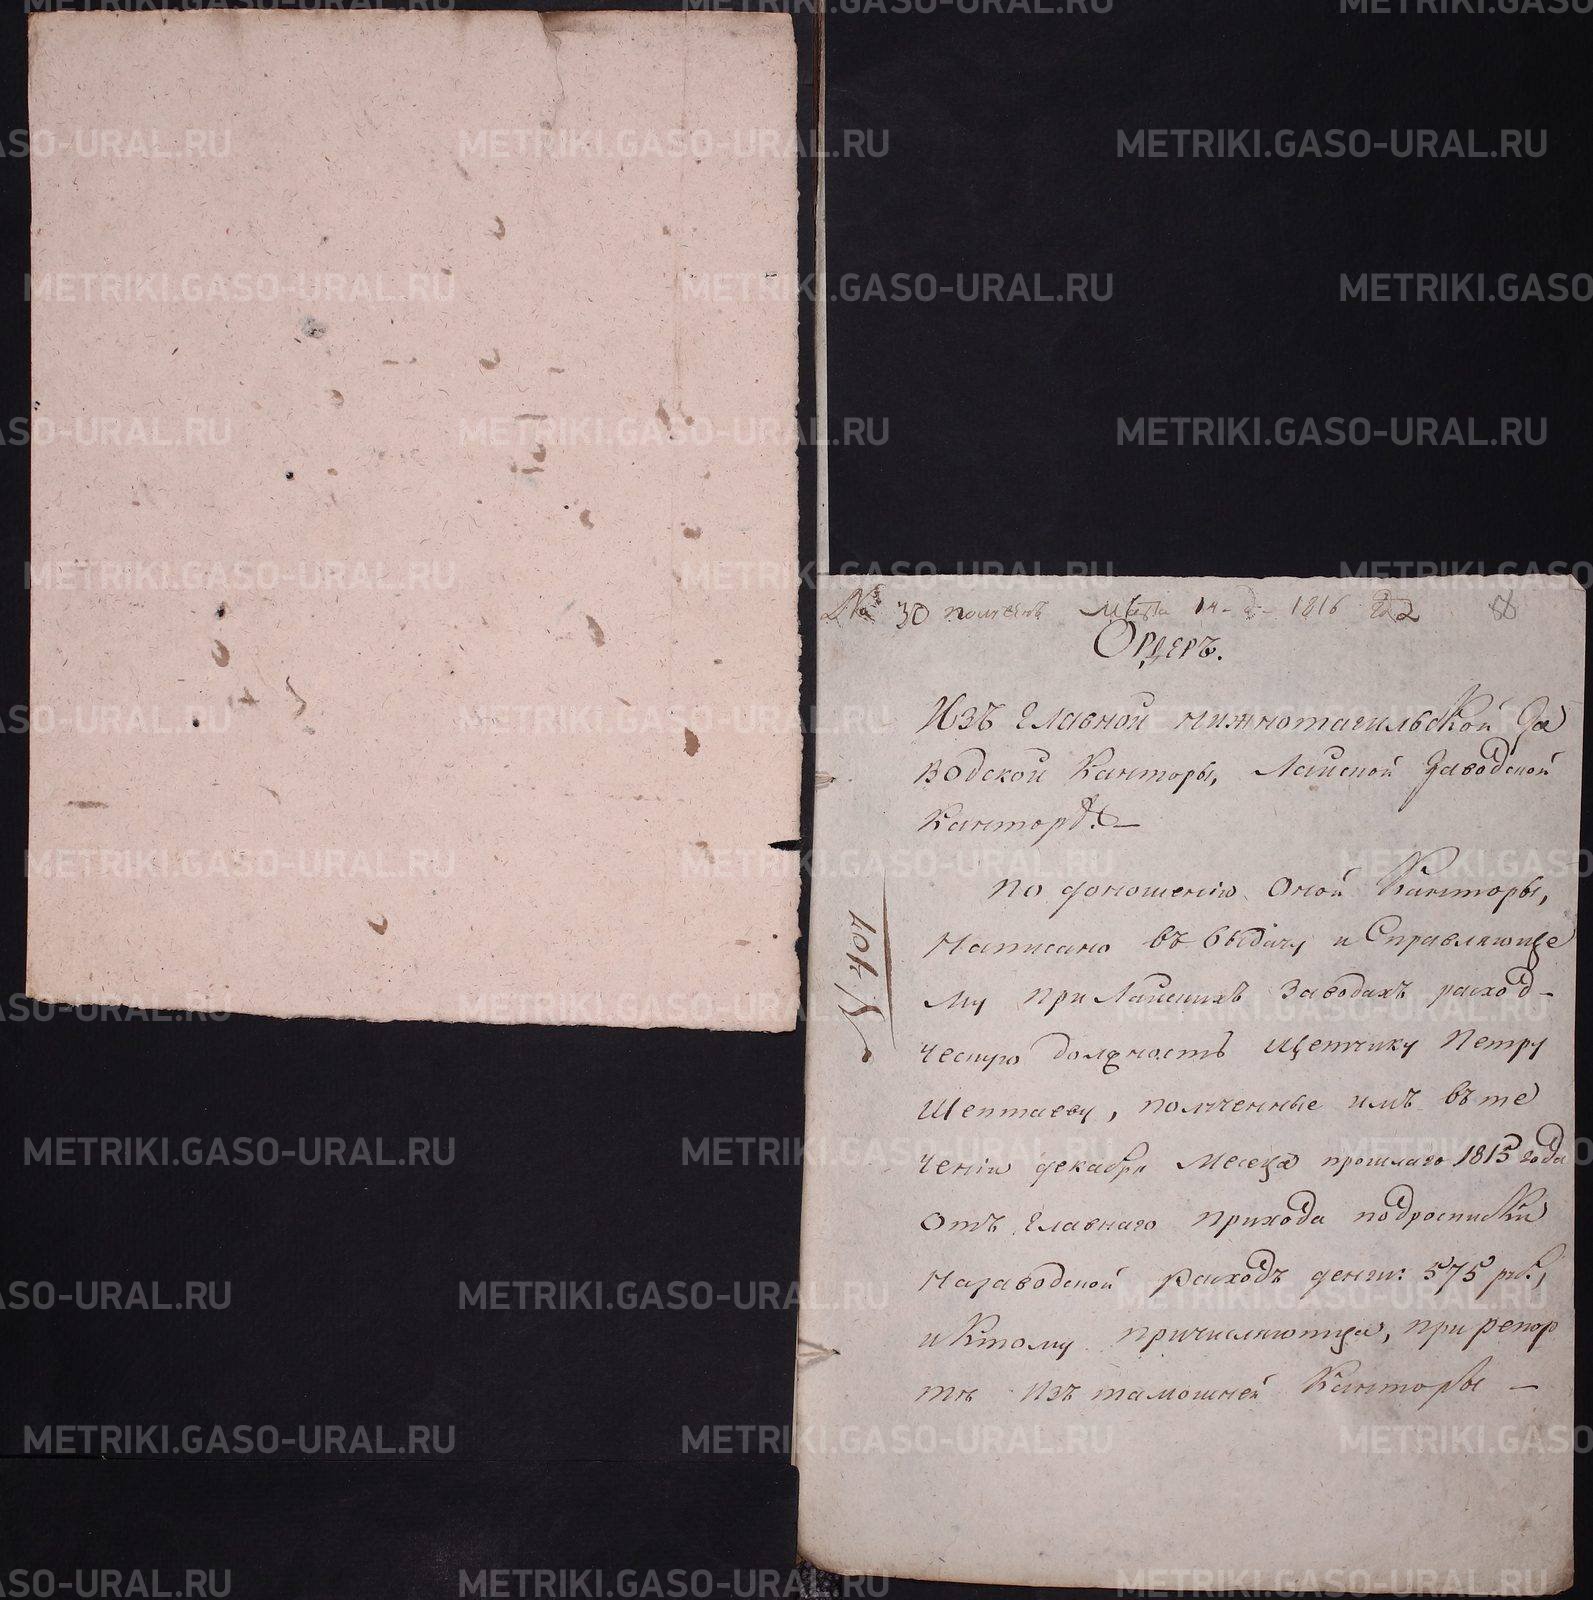 № 30 полученъ Марта 14 д 1816 22
Ордеръ.
Изъ Главной нижнотагильской За
водской Канторы, Лайской Заводской
Канторѣ. —
По доношенію оной Канторы,
написано въ выдачу и справляюще
му при Лайскихъ Заводахъ расход-
ческую должность щетчику Петру
Шептаеву, полученные имъ въ те
ченіи декабря месеца прошлаго 1815 года
отъ главнаго прихода подросписки
на заводской расходъ денги: 575 руб.,
и ктому причисляютца, при репор
те изъ тамошней Канторы —
№ 404
METRIKI.GASO-URAL.RU